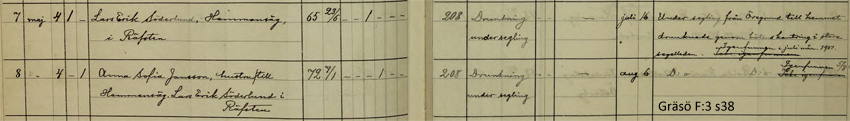 7 maj 4 1 Lars Erik Söderlund, Hemmansäg, 65 23/6 1 208 Drunkning juli 16 Under segling från Öregrund till hemmet
i Räfsten under segling drunknade genom båtskantring i stora
segelleden. i juli mån. 1901.
8 4 1 Anna Sofia Jansson, hustru till 72 7/1 1 208 Drunkning aug 6 D:o
Hemmansäg. Lars Erik Söderlund i under segling
Räfsten
Gräsö F:3 s38